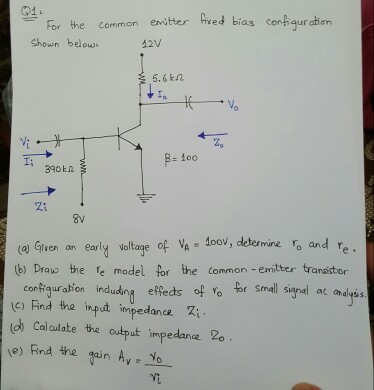 Q1:
For the common emitter fixed bias configuration
shown below:
12V
5.6 kΩ
Io
Vo
Vi
Ii
Zo
390kΩ
β = 100
Zi
8V
(a) Given an early voltage of VA = 100V, determine ro and re.
(b) Draw the re model for the common-emitter transistor
configuration including effects of ro for small signal ac analysis.
(c) Find the input impedance Zi.
(d) Calculate the output impedance Zo.
(e) Find the gain Av = Vo
Vi